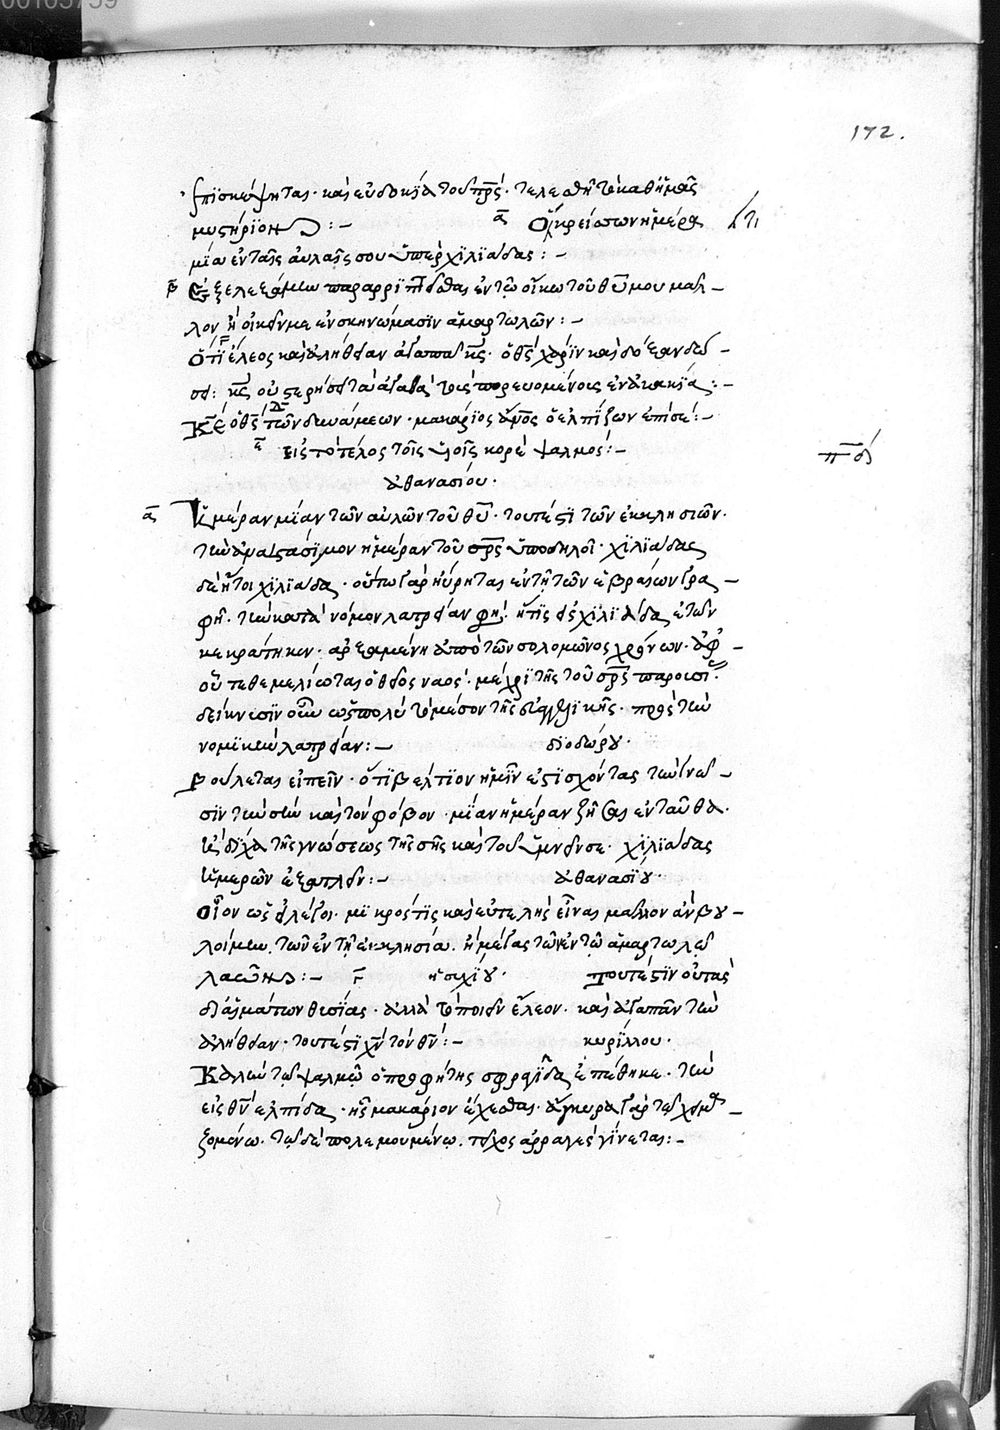 00105759
172.
ἐπϊσκέψηται· καὶ εὐδοκΐα τοῦ πρς̅· τελεσθῆ τὸ καθ' ἡμᾶς
μυστήριον :- α̅ Ὅτι κρείσσων ἡμέρα
μία ἐν ταῖς αὐλαῖς σου ὑπὲρ χϊλϊάδας :-
β̅ Ἐξελεξάμην παραρριπτεῖσθαι ἐν τῶ οἴκω τοῦ θυ̅ μου μαλ-
λον ἢ οἰκεῖν με ἐν σκηνώμασϊν ἁμαρτωλῶν :-
Ὅτϊ ἔλεος καὶ ἀλήθειαν ἀγαπᾶ κς̅· ὁ θς̅ χάρϊν καὶ δόξαν δώ-
σει: κς̅ οὐ στερήσει τὰ ἀγαθὰ τοῖς πορευομένοις ἐν ἀκακϊα :-
Κε̅ ὁ θς̅ τῶν δυνάμεων· μακάρϊος ἄνος̅ ὁ ἐλπΐζων ἐπὶ σέ :-
εἰς τὸ τέλος τοῖς υἱοῖς κορὲ ψαλμός :- πδ̅
ἀθανασίου·
α̅ Ἡμέραν μΐαν τῶν αὐλῶν τοῦ θυ̅· τουτέστϊ τῶν ἐκκλησιῶν·
τὴν ἀναστάσϊμον ἡμέραν τοῦ σρς̅ ὑποδηλοῖ· χϊλϊάδας
δὲ ἤτοι χϊλϊάδα· οὕτω γὰρ ηὕρηται ἐν τῆ τῶν ἑβραίων γρα-
φῆ· τὴν κατὰ νόμον λατρείαν φησὶ· ἥτϊς εἰς χϊλϊάδα ἐτῶν
κεκράτηκεν· ἀρξαμένη ἀπὸ τῶν σολομῶνος χρόνων· ἀφ'-
οὗ τεθεμελίωται ὁ θεῖος ναός· μέχρϊ τῆς τοῦ σρς̅ παρουσί
δείκνυσϊν οὖν ὡς πολὺ τὸ μέσον τῆς εὐαγγελϊκῆς· πρὸς τὴν
νομϊκὴν λατρείαν :- δϊοδώρου·
Βούλεται εἰπεῖν· ὅτϊ βέλτϊον ἡμῖν ἐστϊ σχόντας τὴν γνῶ-
σϊν τὴν σὴν καὶ τὸν φόβον· μΐαν ἡμέραν ζῆσαι ἐνταῦθα·
ἢ δΐχα τῆς γνώσεως τῆς σῆς καὶ τοῦ ὑμνεῖν σε· χϊλϊάδας
ἡμερῶν ἐξαντλεῖν :- ἀθανασΐου·
οἷον ὡς εἰ λέγοι· μϊκρός τϊς καὶ εὐτελὴς εἶναι μᾶλλον ἂν βου-
λοίμην τῶν ἐν τῆ ἐκκλησία. ἢ μέγας τῶν ἐν τῶ ἁμαρτωλῶ
λαῶ :- γ̅ ἡσυχϊου· τουτέστϊν οὔτε
δι' αἱμάτων θυσΐας· ἀλλὰ τὸ ποιεῖν ἔλεον· καὶ ἀγαπᾶν τὴν
ἀλήθειαν· τουτέστϊ χν̅ τὸν θν̅ :- κυρΐλλου·
Καλὴν τῶ ψαλμῶ ὁ προφήτης σφραγῖδα ἐπέθηκε. τὴν
εἰς θν̅ ἐλπίδα· ἣν μακάριον ἔχεσθαι· ἄγκυρα γὰρ τῶ χειμα-
ζομένω· τῶ δὲ πολεμουμένω· τεῖχος ἀρραγὲς γΐνεται :-